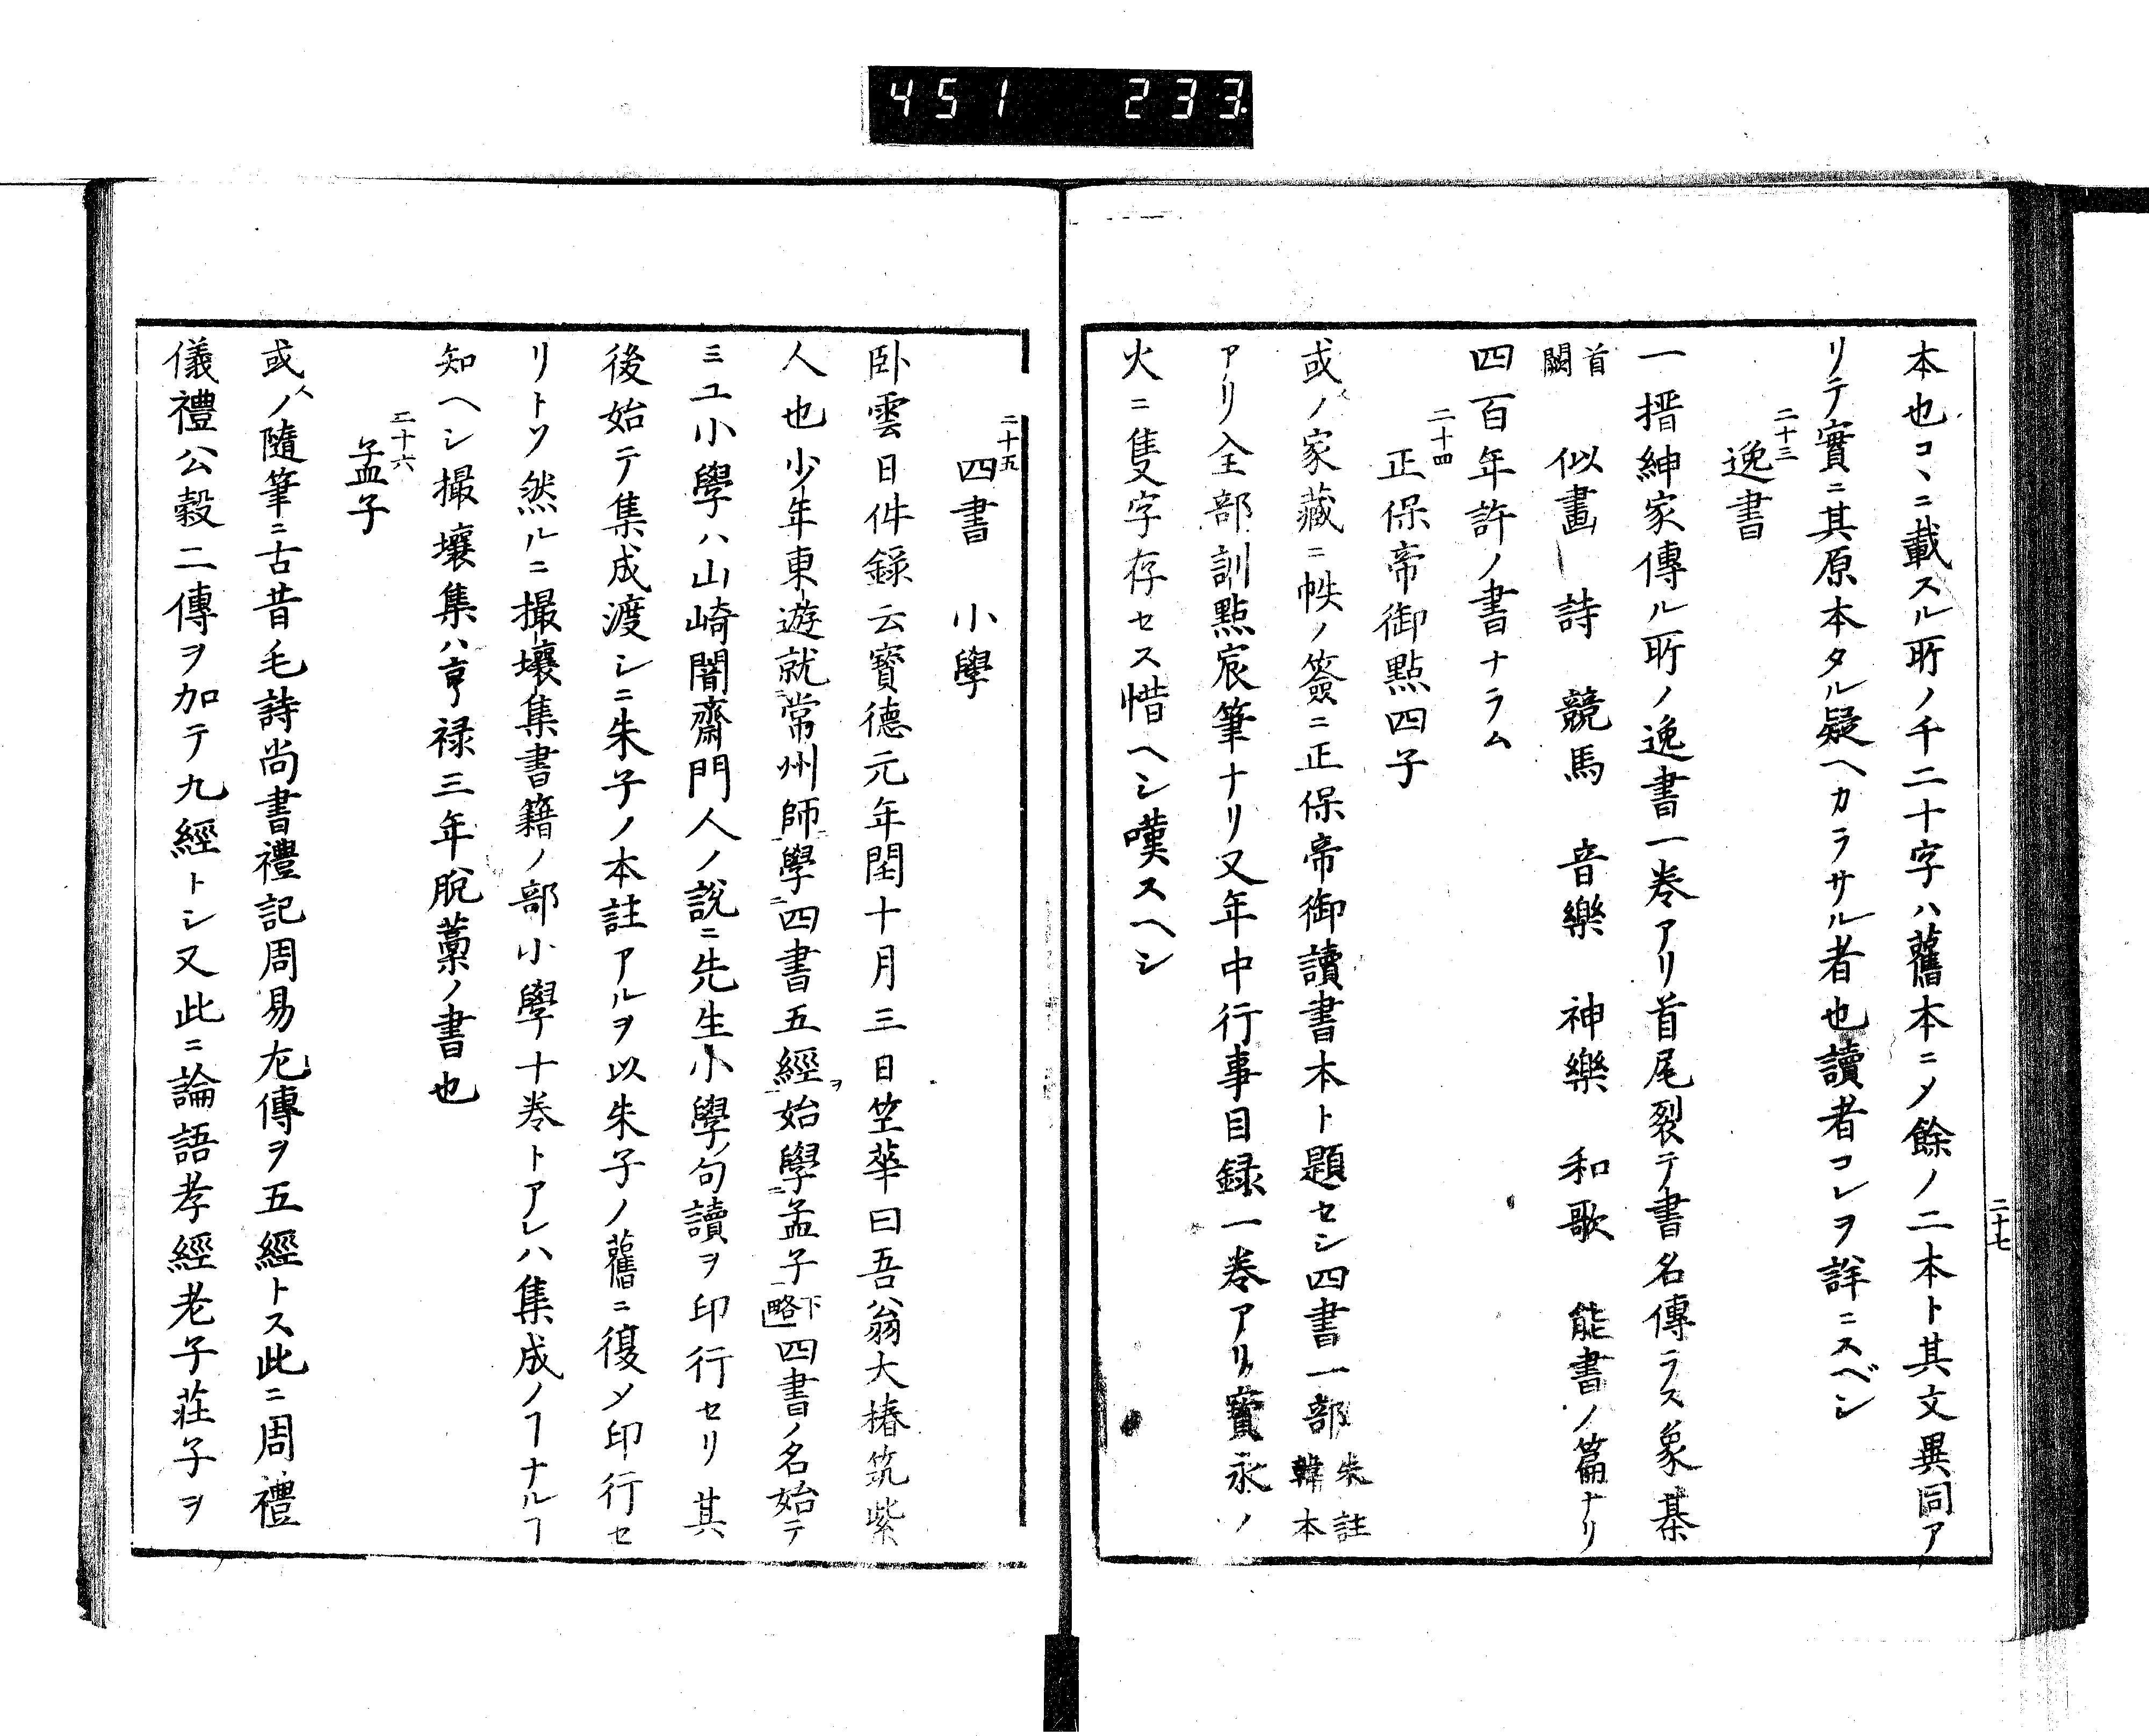 451 233
二十七
本也コヽニ載スル所ノ千二十字ハ舊本ニメ餘ノ二本ト其文異同ア
リテ實ニ其原本タル疑ヘカラサル者也讀者コレヲ詳ニスベシ
二十三
逸書
一搢紳家傳ル所ノ逸書一巻アリ首尾裂テ書名傳ラス象棊
首闕 似畫 詩 競馬 音樂 神樂 和歌 能書ノ篇ナリ
四百年許ノ書ナラム
二十四
正保帝御點四子
或人ノ家藏ニ帙ノ簽ニ正保帝御讀書本ト題セシ四書一部朱註韓本
アリ全部訓點宸筆ナリ又年中行事目録一巻アリシ寳永ノ
火ニ隻字存セス惜ヘシ嘆スヘシ
二十五
四書 小學
卧雲日件錄云寳德元年閏十月三日竺華曰吾翁大椿筑紫
人也少年東遊就常州師學四書五經ヲ始學孟子下略四書ノ名始テ
ミユ小學ハ山崎闇齋門人ノ說ニ先生小學ノ句讀ヲ印行セリ其
後始テ集成渡シニ朱子ノ本註アルヲ以朱子ノ舊ニ復メ印行セ
リトソ然ルニ撮壤集書籍ノ部小學十巻トアレハ集成ノヿナルヿ
知ヘシ撮壤集ハ亨禄三年脫藁ノ書也
二十六
孟子
或人ノ隨筆ニ古昔毛詩尚書禮記周易左傳ヲ五經トス此ニ周禮
儀禮公穀二傳ヲ加テ九經トシ又此ニ論語孝經老子莊子ヲ